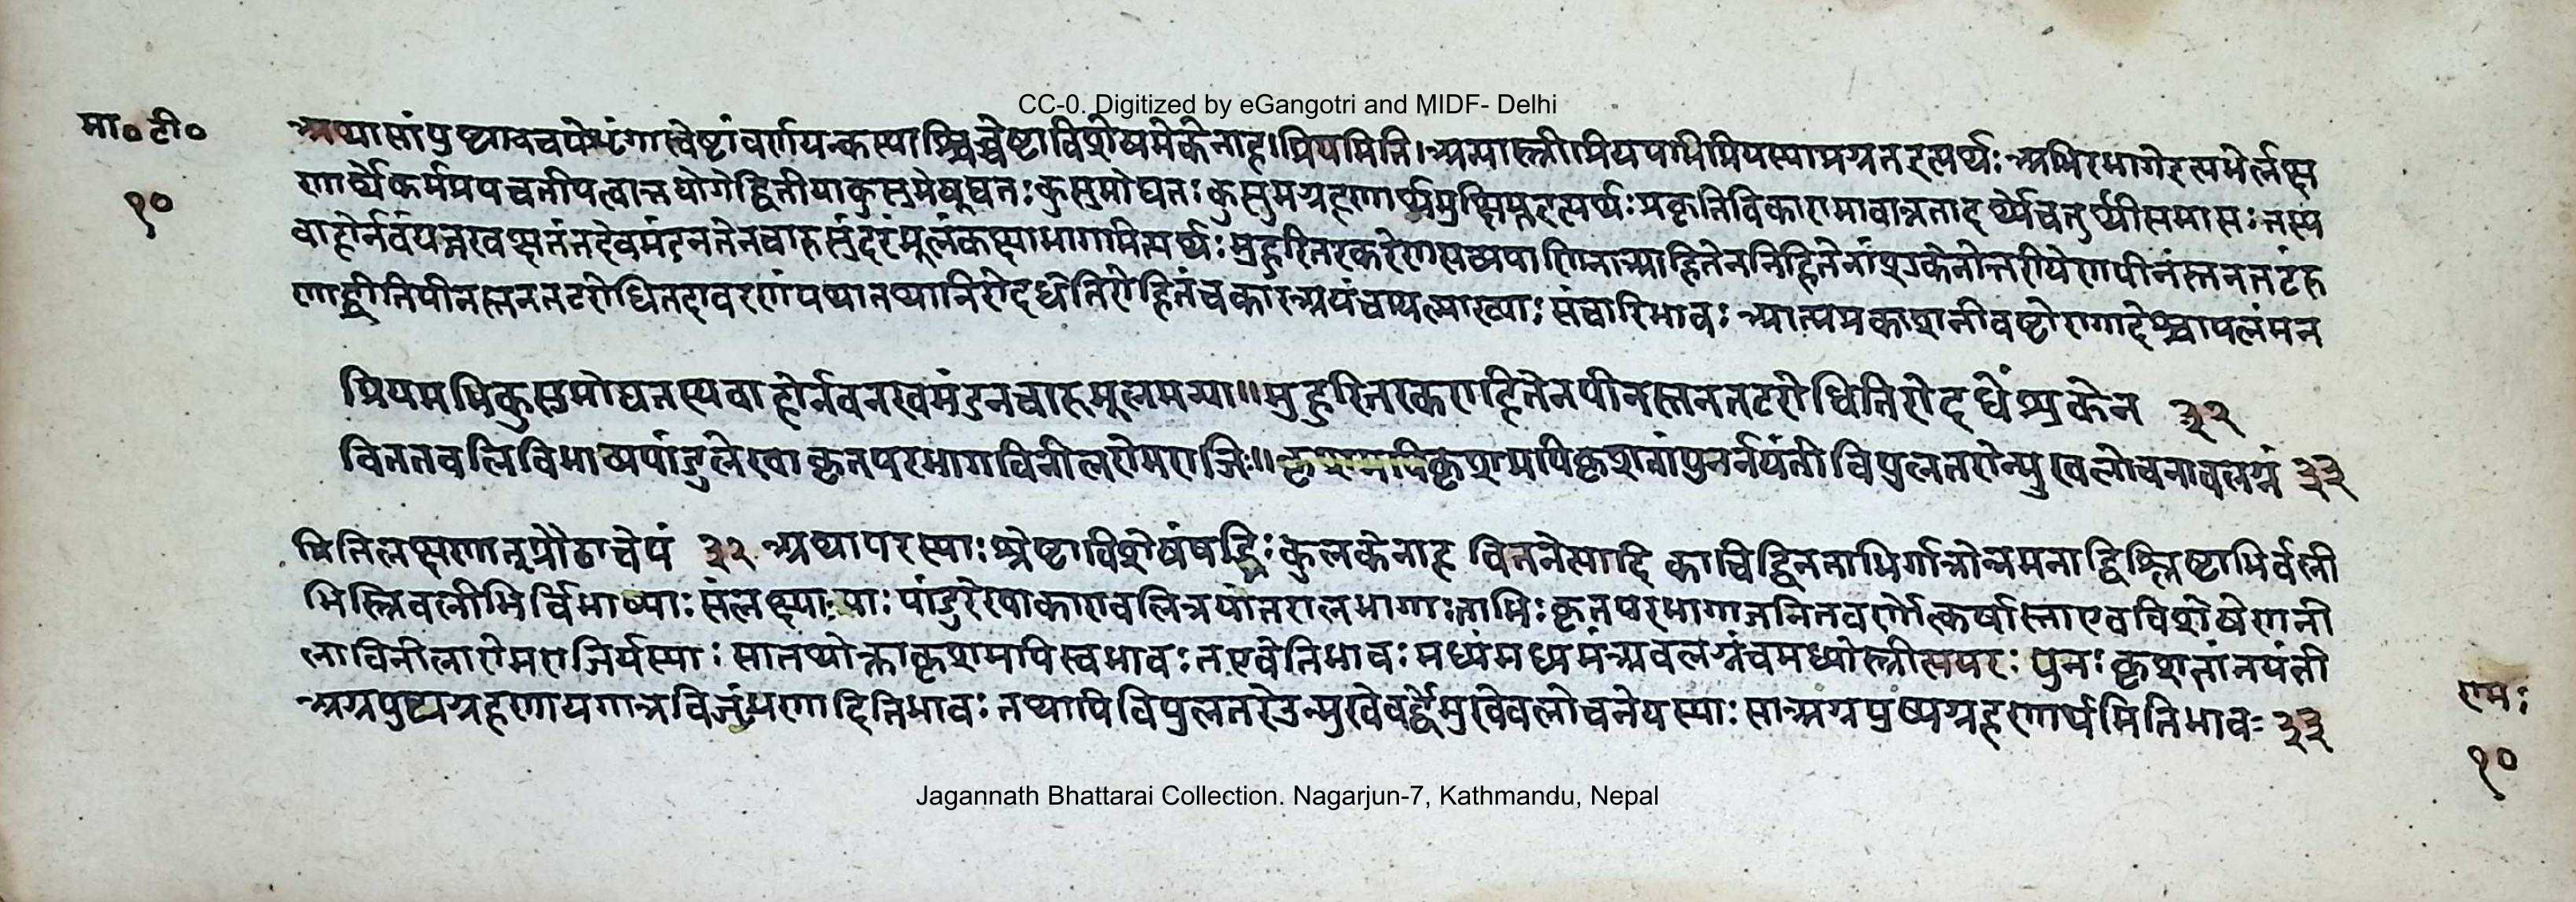 CC-0. Digitized by eGangotri and MIDF- Delhi
मा० टी०
१०
अथासांपुष्पावचयेशृंगारचेष्टांवर्णयन्कस्याश्चिच्चेष्टाविशेषमेकेनाह।प्रियमिति।अन्यास्त्रीप्रियमभिप्रियस्याग्रतइत्यर्थः अभिरभागेइत्यभेर्लक्ष
णार्थेकर्मप्रवचनीयत्वात्तद्योगेद्वितीयाकुसुमेषूद्यतः कुसुमोद्यतः कुसुमग्रहणार्थमुत्क्षिप्तइत्यर्थः प्रकृतिविकाराभावान्नतादर्थ्येचतुर्थीसमासः तस्य
वाहोर्नवंयन्नखक्षतंतदेवमंडनंतेनचारुसुंदरंमूलंकक्षाभागमित्यर्थः मुहुरितरकरेणसव्यपाणिनाआहितेननिहितेनांशुकेनोत्तरीयेणपीनंस्तनतटंरु
णद्धीतिपीनस्तनतटरोधितदावरणंयथातथातिरोदधेतिरोहितंचकारअयंचापल्याख्यः संचारिभावः आत्मप्रकाशनीचेष्टारागादेश्चापलंमत
प्रियमभिकुसुमोद्यतस्यवाहोर्नवनखमंडनचारुमूलमन्या॥मुहुरितरकराहितेनपीनस्तनतटरोधितिरोदधेंशुकेन ३२
विततवलिविभाव्यपांडुलेखाकृतपरभागविनीलरोमराजिः॥कृशमपिकृशतांपुनर्नयंतीविपुलतरोन्मुखलोचनावलग्नं ३३
मितिलक्षणात्प्रौढाचेयं ३२ अथापरस्याः श्चेष्टाविशेषंषड्भिः कुलकेनाह विततेत्यादि काचिद्वितताभिर्गात्रोन्नमनाद्विश्लिष्टाभिर्वली
भिस्त्रिवलीभिर्विभाव्याः संलक्ष्याः याः पांडुरेखाकारावलित्रयांतरालभागाः ताभिः कृतपरभागाजनितवर्णोत्कर्षास्ताएवविशेषेणनी
लाविनीलारोमराजिर्यस्याः सातथोक्ताकृशमपिस्वभावः तएवेतिभावः मध्यंमध्यमंअवलग्नंचमध्योस्त्रीत्यमरः पुनः कृशतांनयंती
अग्रपुष्पग्रहणायगात्रविजृंभणादितिभावः तथापिविपुलतरेउन्मुखेऊर्ध्वमुखेवलोचनेयस्याः साअग्रपुष्पग्रहणार्थमितिभावः ३३
रामः
१०
Jagannath Bhattarai Collection. Nagarjun-7, Kathmandu, Nepal